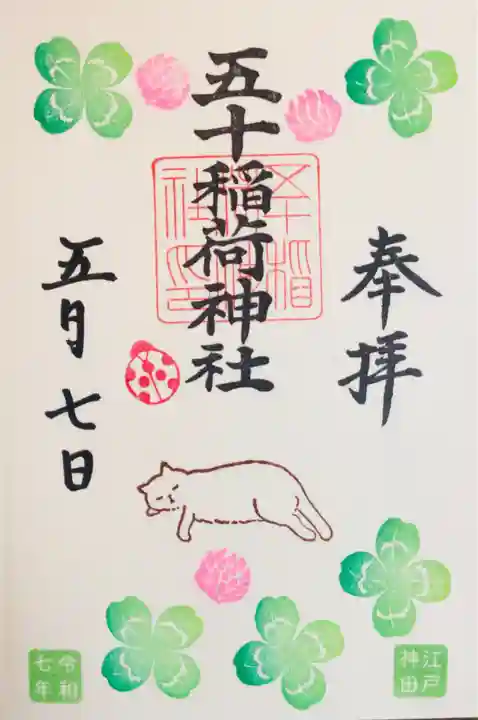 奉拝
五十稲荷神社
五月七日
江戸
神田
令和
七年